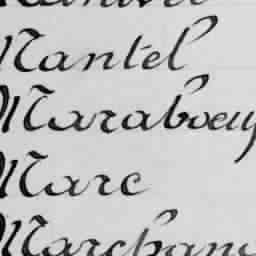 Mantel
Maraboeuf
Marc
Marchand